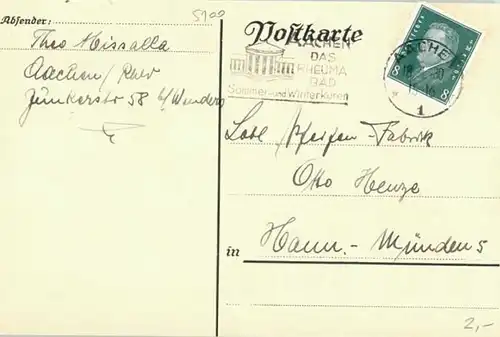 Absender:
5900
Theo Missalla
Aachen/
Junkerstr 58
Postkarte
AACHEN
DAS
RHEUMA
BAD
Sommer- und Winterkuren
AACHEN
1
8 8
Pfeifen-Fabrik
Otto Henze
in Hann.-Münden
2,-